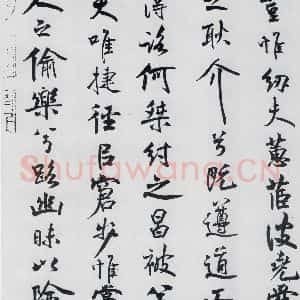 豈惟紉夫蕙茝彼堯舜
之耿介兮既遵道而
得路何桀紂之昌被兮
夫唯捷徑以窘步惟黨
人之偷樂兮路幽昧以險
Shufawang.CN